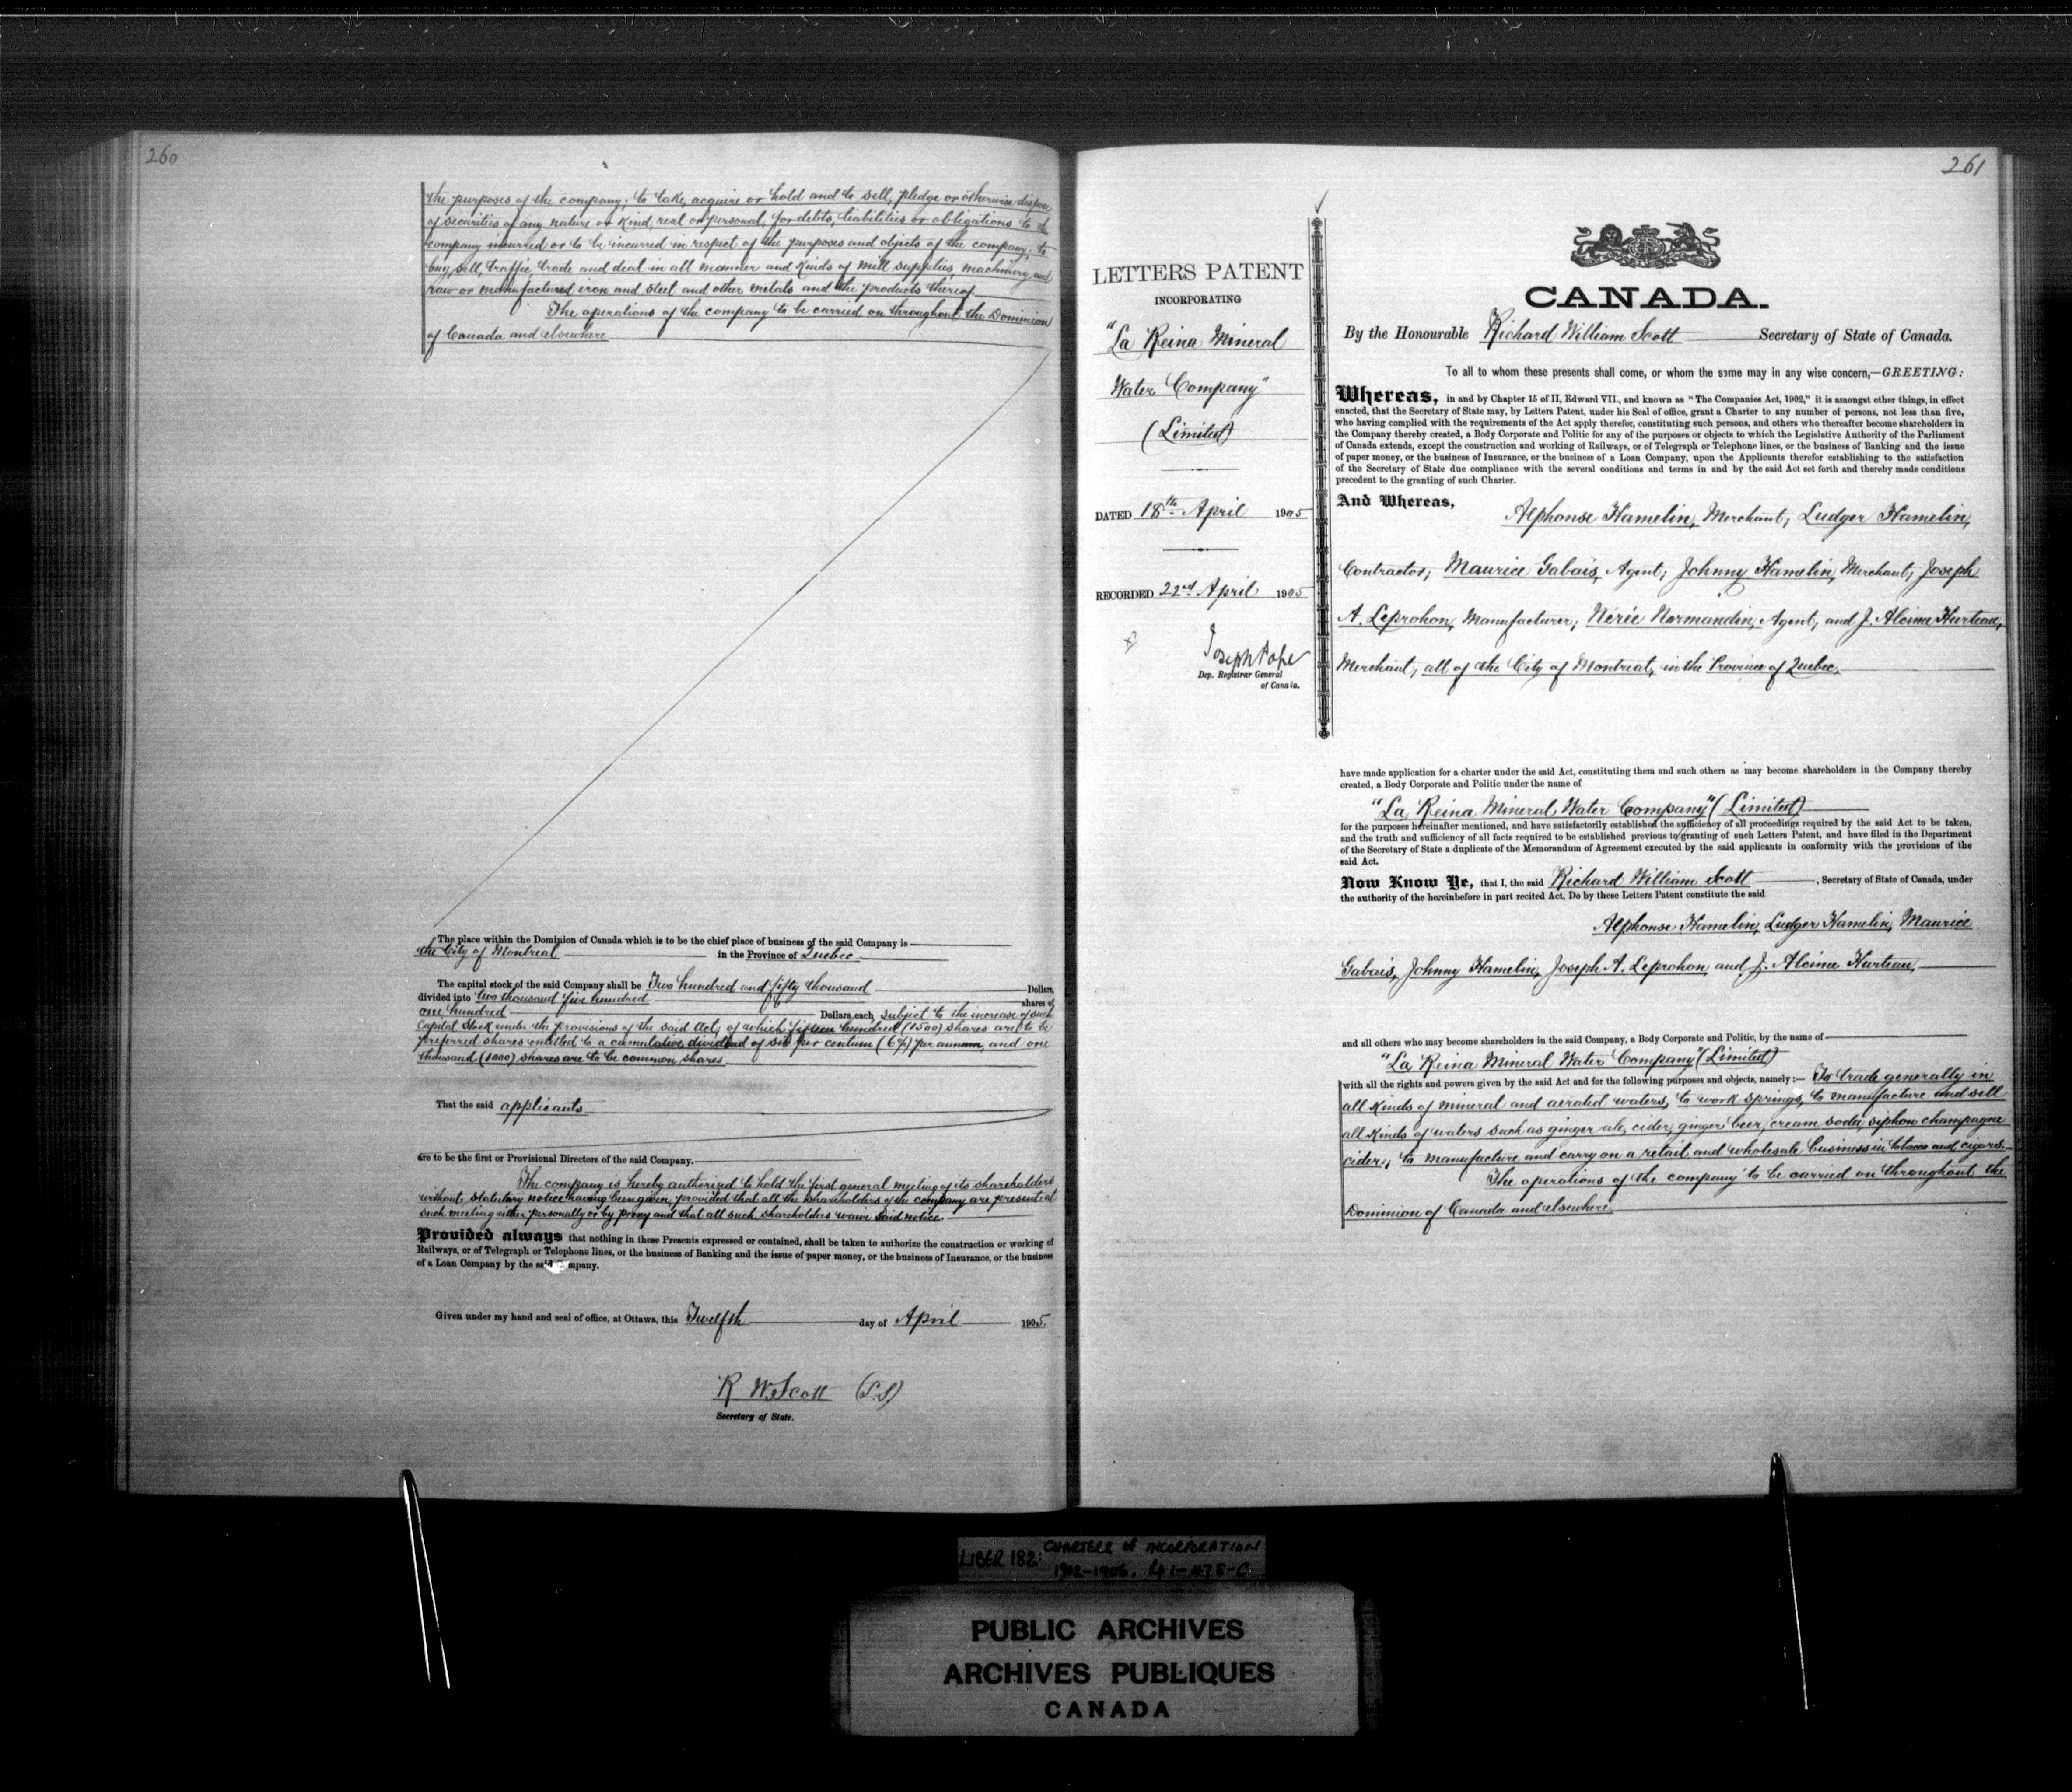 260
the purposes of the company; to take, acquire or hold and to sell, pledge or otherwise dispose
of securities of any nature or kind, real or personal, for debts, liabilities or obligations to the
company incurred or to be incurred in respect of the purposes and objects of the company; to
buy, sell, traffic, trade and deal in all manner and kinds of mill supplies, machinery and
raw or manufactured iron and steel and other metals and the products thereof.
The operations of the company to be carried on throughout the Dominion
of Canada and elsewhere
The place within the Dominion of Canada which is to be the chief place of business of the said Company is
the City of Montreal in the Province of Quebec
The capital stock of the said Company shall be Two hundred and fifty thousand Dollars,
divided into two thousand five hundred shares of
one hundred Dollars each, subject to the increase of such
Capital Stock under the provisions of the said Act; of which fifteen hundred (1500) shares are to be
preferred shares entitled to a cumulative dividend of six per centum (6%) per annum, and one
thousand (1000) shares are to be common shares
That the said applicants
are to be the first or Provisional Directors of the said Company.
The company is hereby authorized to hold the first general meeting of its shareholders
without statutory notice having been given, provided that all the shareholders of the company are present at
such meeting either personally or by proxy and that all such shareholders waive said notice.
Provided always that nothing in these Presents expressed or contained, shall be taken to authorize the construction or working of
Railways, or of Telegraph or Telephone lines, or the business of Banking and the issue of paper money, or the business of Insurance, or the business
of a Loan Company by the said Company.
Given under my hand and seal of office, at Ottawa, this Twelfth day of April 1905.
R W. Scott (L.S)
Secretary of State.
261
LETTERS PATENT
INCORPORATING
"La Reina Mineral
Water Company"
(Limited)
DATED 18th April 1905
RECORDED 22nd April 1905
Joseph Pope
Dep. Registrar General
of Canada.
CANADA.
By the Honourable Richard William Scott Secretary of State of Canada.
To all to whom these presents shall come, or whom the same may in any wise concern,—GREETING:
Whereas, in and by Chapter 15 of II, Edward VII., and known as "The Companies Act, 1902," it is amongst other things, in effect
enacted, that the Secretary of State may, by Letters Patent, under his Seal of office, grant a Charter to any number of persons, not less than five,
who having complied with the requirements of the Act apply therefor, constituting such persons, and others who thereafter become shareholders in
the Company thereby created, a Body Corporate and Politic for any of the purposes or objects to which the Legislative Authority of the Parliament
of Canada extends, except the construction and working of Railways, or of Telegraph or Telephone lines, or the business of Banking and the issue
of paper money, or the business of Insurance, or the business of a Loan Company, upon the Applicants therefor establishing to the satisfaction
of the Secretary of State due compliance with the several conditions and terms in and by the said Act set forth and thereby made conditions
precedent to the granting of such Charter.
And Whereas,
Alphonse Hamelin, Merchant; Ludger Hamelin,
Contractor; Maurice Gabais, Agent; Johnny Hamelin, Merchant; Joseph
A. Leprohon, Manufacturer; Nérée Normandin, Agent; and J. Alcime Hurteau,
Merchant; all of the City of Montreal, in the Province of Quebec,
have made application for a charter under the said Act, constituting them and such others as may become shareholders in the Company thereby
created, a Body Corporate and Politic under the name of
"La Reina Mineral Water Company" (Limited)
for the purposes hereinafter mentioned, and have satisfactorily established the sufficiency of all proceedings required by the said Act to be taken,
and the truth and sufficiency of all facts required to be established previous to granting of such Letters Patent, and have filed in the Department
of the Secretary of State a duplicate of the Memorandum of Agreement executed by the said applicants in conformity with the provisions of the
said Act.
Now Know Ye, that I, the said Richard William Scott, Secretary of State of Canada, under
the authority of the hereinbefore in part recited Act, Do by these Letters Patent constitute the said
Alphonse Hamelin, Ludger Hamelin, Maurice
Gabais, Johnny Hamelin, Joseph A. Leprohon and J. Alcime Hurteau,
and all others who may become shareholders in the said Company, a Body Corporate and Politic, by the name of
"La Reina Mineral Water Company" (Limited)
with all the rights and powers given by the said Act and for the following purposes and objects, namely:— To trade generally in
all kinds of mineral and aerated waters, to work springs, to manufacture and sell
all kinds of waters such as ginger ale, cider, ginger beer, cream soda, siphon champagne
cider; to manufacture and carry on a retail and wholesale business in tobacco and cigars.
The operations of the company to be carried on throughout the
Dominion of Canada and elsewhere.
LIBER 182: CHARTERS of INCORPORATION
1902-1906. 41-478-C
PUBLIC ARCHIVES
ARCHIVES PUBLIQUES
CANADA